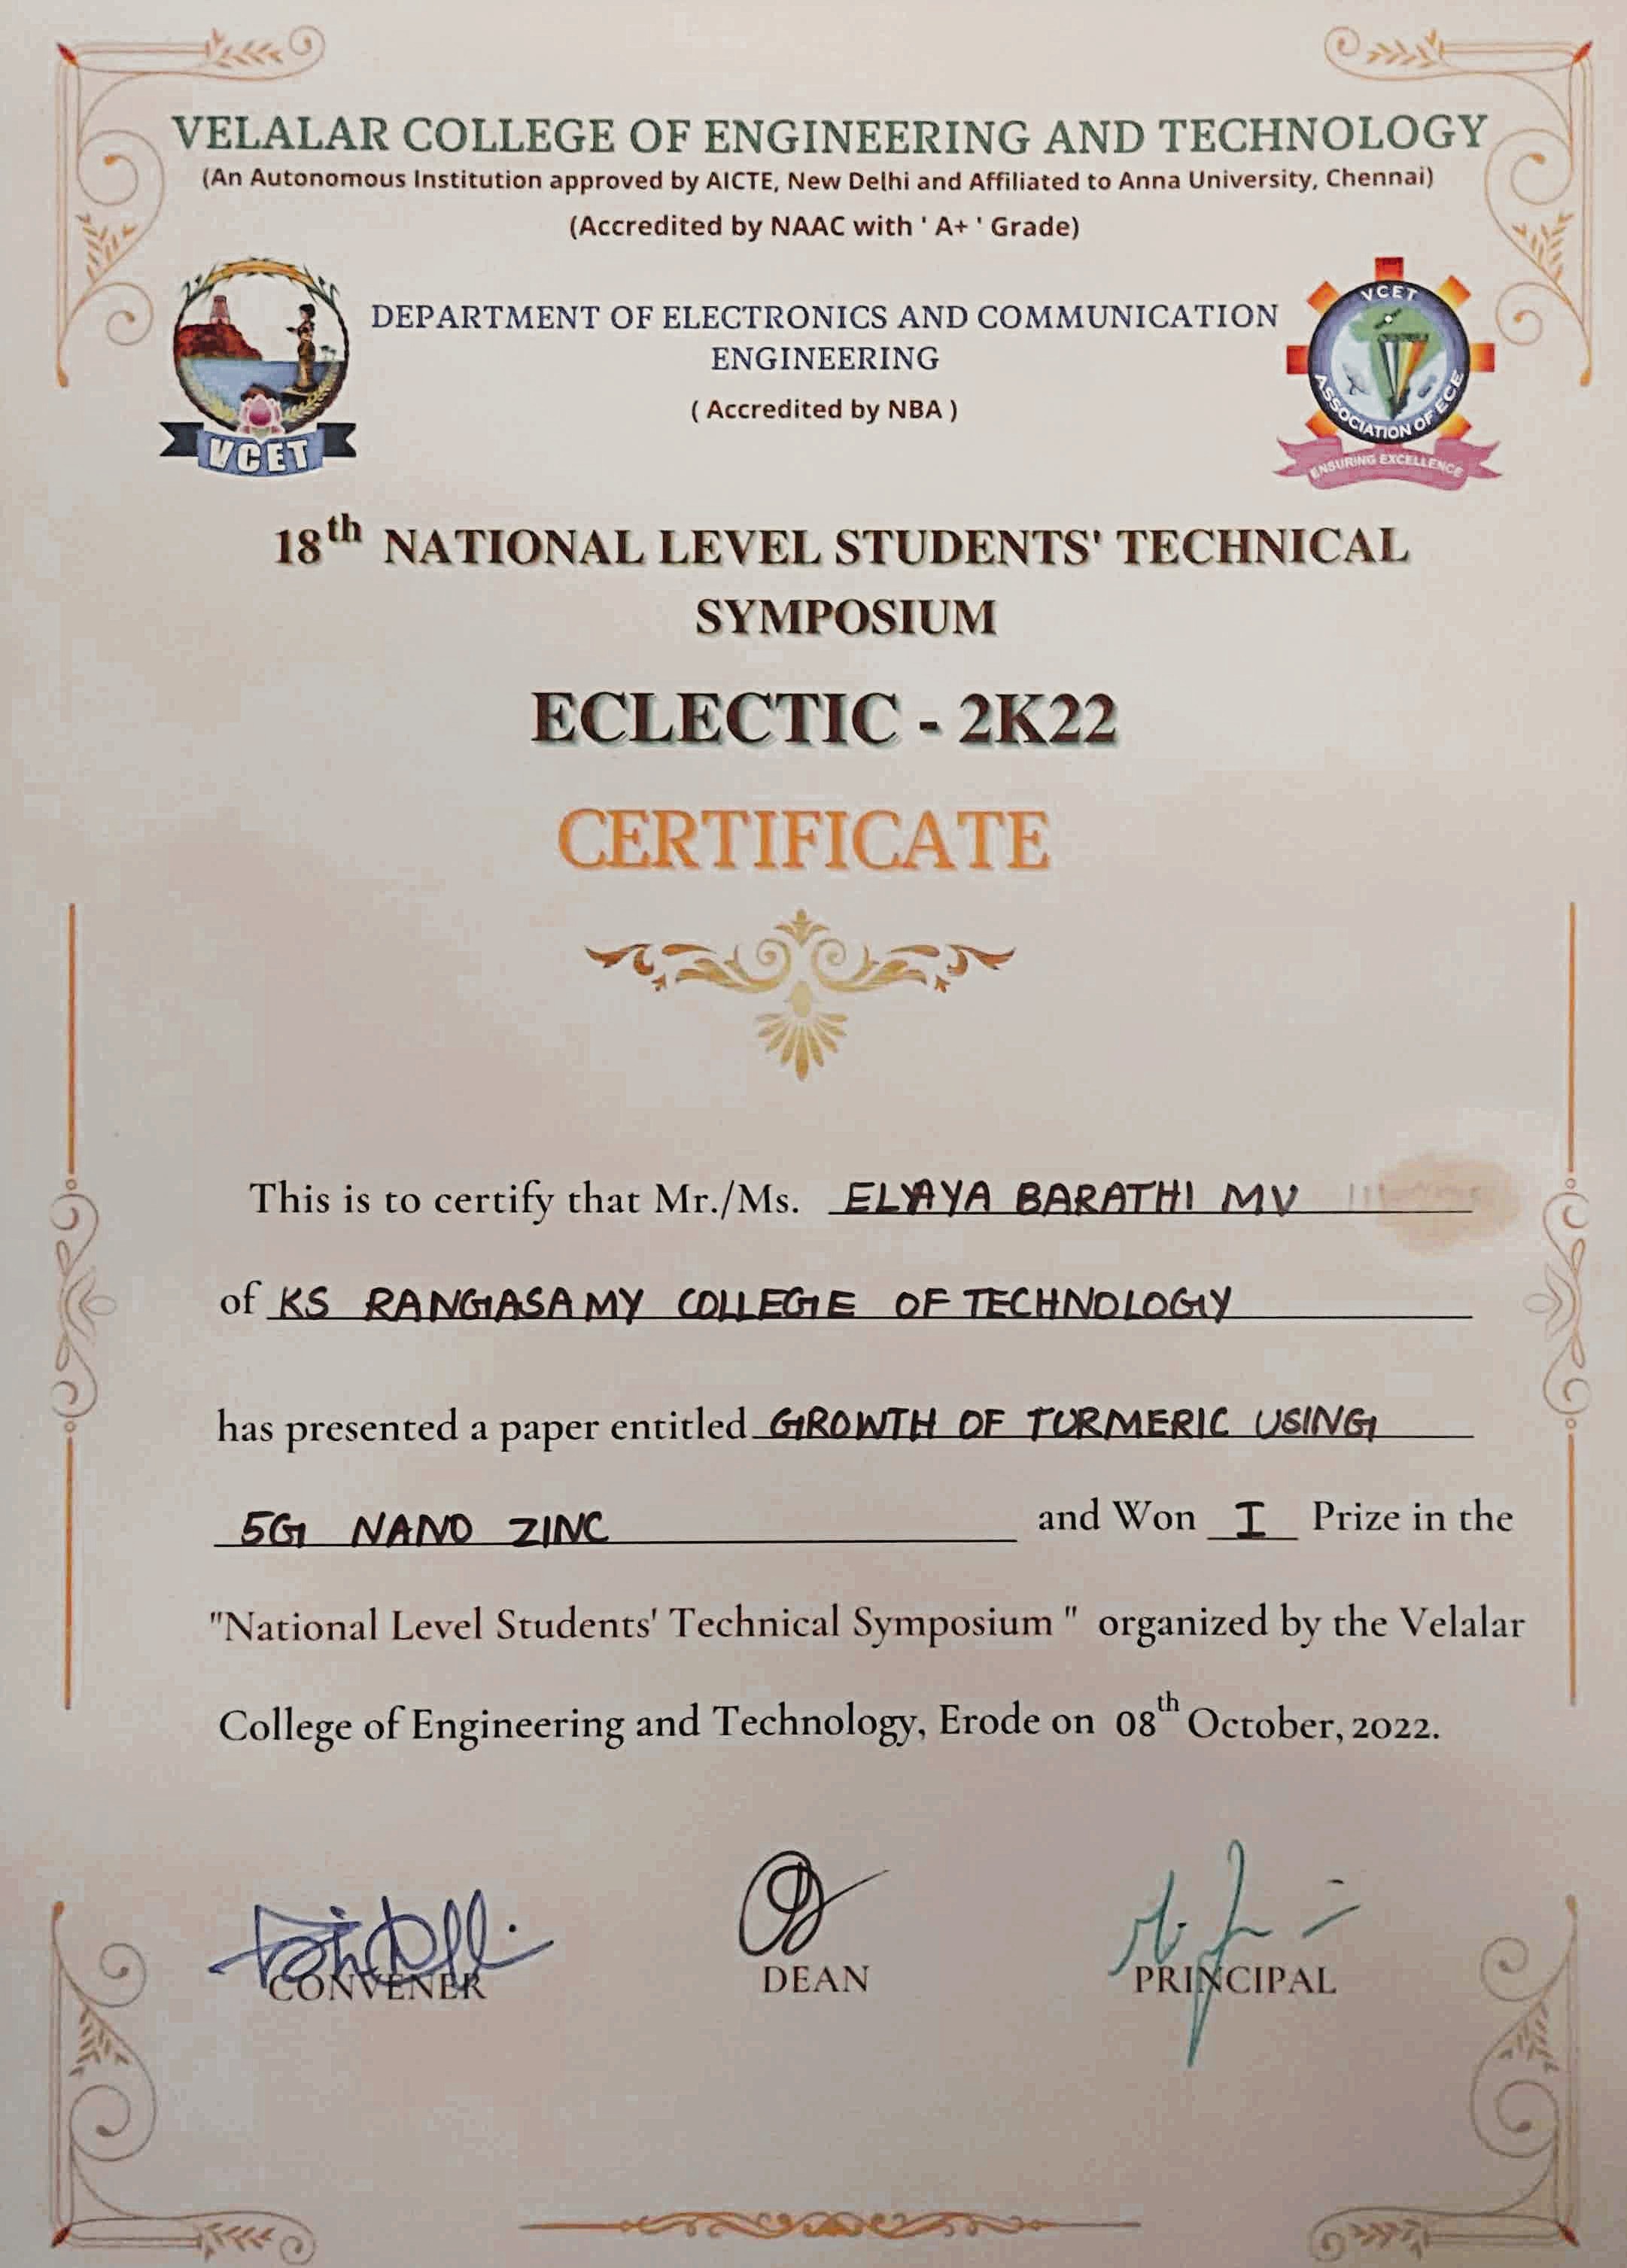 VELALAR COLLEGE OF ENGINEERING AND TECHNOLOGY
(An Autonomous Institution approved by AICTE, New Delhi and Affiliated to Anna University, Chennai)
(Accredited by NAAC with ' A+ ' Grade)
DEPARTMENT OF ELECTRONICS AND COMMUNICATION
ENGINEERING
( Accredited by NBA )
VCET
VCET
ASSOCIATION OF ECE
ENSURING EXCELLENCE
18th NATIONAL LEVEL STUDENTS' TECHNICAL
SYMPOSIUM
ECLECTIC - 2K22
CERTIFICATE
This is to certify that Mr./Ms. ELYAYA BARATHI MV
of KS RANGASAMY COLLEGE OF TECHNOLOGY
has presented a paper entitled GROWTH OF TURMERIC USING
5G NANO ZINC and Won I Prize in the
"National Level Students' Technical Symposium " organized by the Velalar
College of Engineering and Technology, Erode on 08th October, 2022.
CONVENER DEAN PRINCIPAL